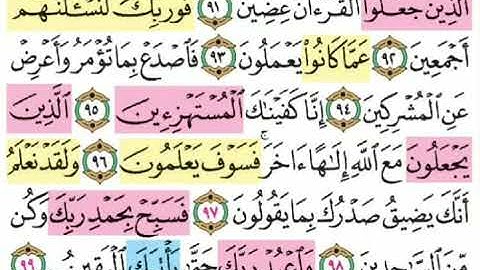 الَّذِينَ جَعَلُوا الْقُرْءَانَ عِضِينَ ٩١ فَوَرَبِّكَ لَنَسْـَٔلَنَّهُمْ
أَجْمَعِينَ ٩٢ عَمَّا كَانُوا يَعْمَلُونَ ٩٣ فَاصْدَعْ بِمَا تُؤْمَرُ وَأَعْرِضْ
عَنِ الْمُشْرِكِينَ ٩٤ إِنَّا كَفَيْنَاكَ الْمُسْتَهْزِءِينَ ٩٥ الَّذِينَ
يَجْعَلُونَ مَعَ اللَّهِ إِلَٰهًا ءَاخَرَ ۚ فَسَوْفَ يَعْلَمُونَ ٩٦ وَلَقَدْ نَعْلَمُ
أَنَّكَ يَضِيقُ صَدْرُكَ بِمَا يَقُولُونَ ٩٧ فَسَبِّحْ بِحَمْدِ رَبِّكَ وَكُن
مِّنَ السَّاجِدِينَ ٩٨ وَاعْبُدْ رَبَّكَ حَتَّىٰ يَأْتِيَكَ الْيَقِينُ ٩٩